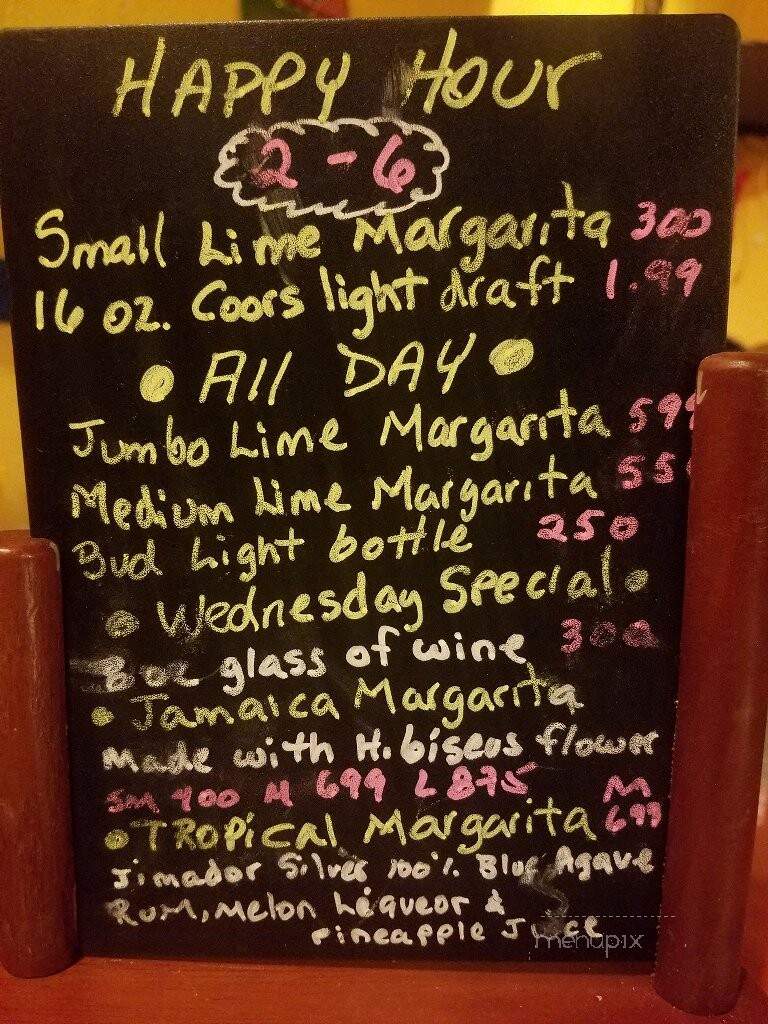 HAPPY HOUR
2 - 6
Small Lime Margarita 300
16 oz. Coors light draft 1.99
• All DAY •
Jumbo Lime Margarita 599
Medium Lime Margarita 55
Bud Light bottle 250
• Wednesday Special •
8 oz glass of wine 300
• Jamaica Margarita
Made with Hibiscus flower
SM 400 M 699 L 875
• TROPICAL Margarita M 699
Jimador Silver 100% Blue Agave
RUM, Melon Liqueor &
pineapple Juice
menupix